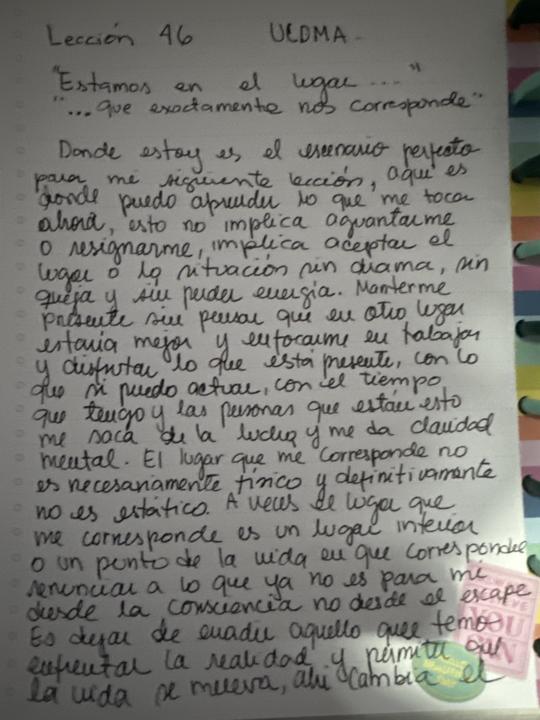 Lección 46 UCDMA -
"Estamos en el lugar ..."
"...que exactamente nos corresponde"
Donde estoy es el escenario perfecto
para mi siguiente lección, aquí es
donde puedo aprender lo que me toca
ahora, esto no implica aguantarme
o resignarme, implica aceptar el
lugar o la situación sin drama, sin
queja y sin perder energía. Manterme
presente sin pensar que en otro lugar
estaria mejor y enfocarme en trabajar
y disfrutar lo que está presente, con lo
que si puedo actuar, con el tiempo
que tengo y las personas que están esto
me saca de la lucha y me da claridad
mental. El lugar que me corresponde no
es necesariamente físico y definitivamente
no es estático. A veces el lugar que
me corresponde es un lugar interior
o un punto de la vida en que corresponde
renunciar a lo que ya no es para mi
desde la consciencia no desde el escape
Es dejar de evadir aquello que temo
enfrentar la realidad y permitir que
la vida se mueva, ahi cambia el
YOU